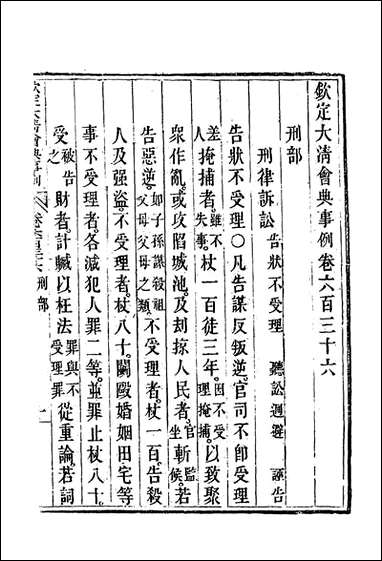 欽定大清會典事例卷六百三十六
刑部
刑律訴訟 告狀不受理 聽訟迴避 誣告
告狀不受理○凡告謀反叛逆官司不卽受理
差人掩捕者雖不失事杖一百徒三年因不受理掩捕以致聚
衆作亂或攻陷城池及刦掠人民者官坐斬監候若
告惡逆如子孫謀殺祖父母父母之類不受理者杖一百告殺
人及强盜不受理者杖八十鬬毆婚姻田宅等
事不受理者各減犯人罪二等並罪止杖八十
受被告之財者計贓以枉法罪與不受理罪從重論若詞
刑部